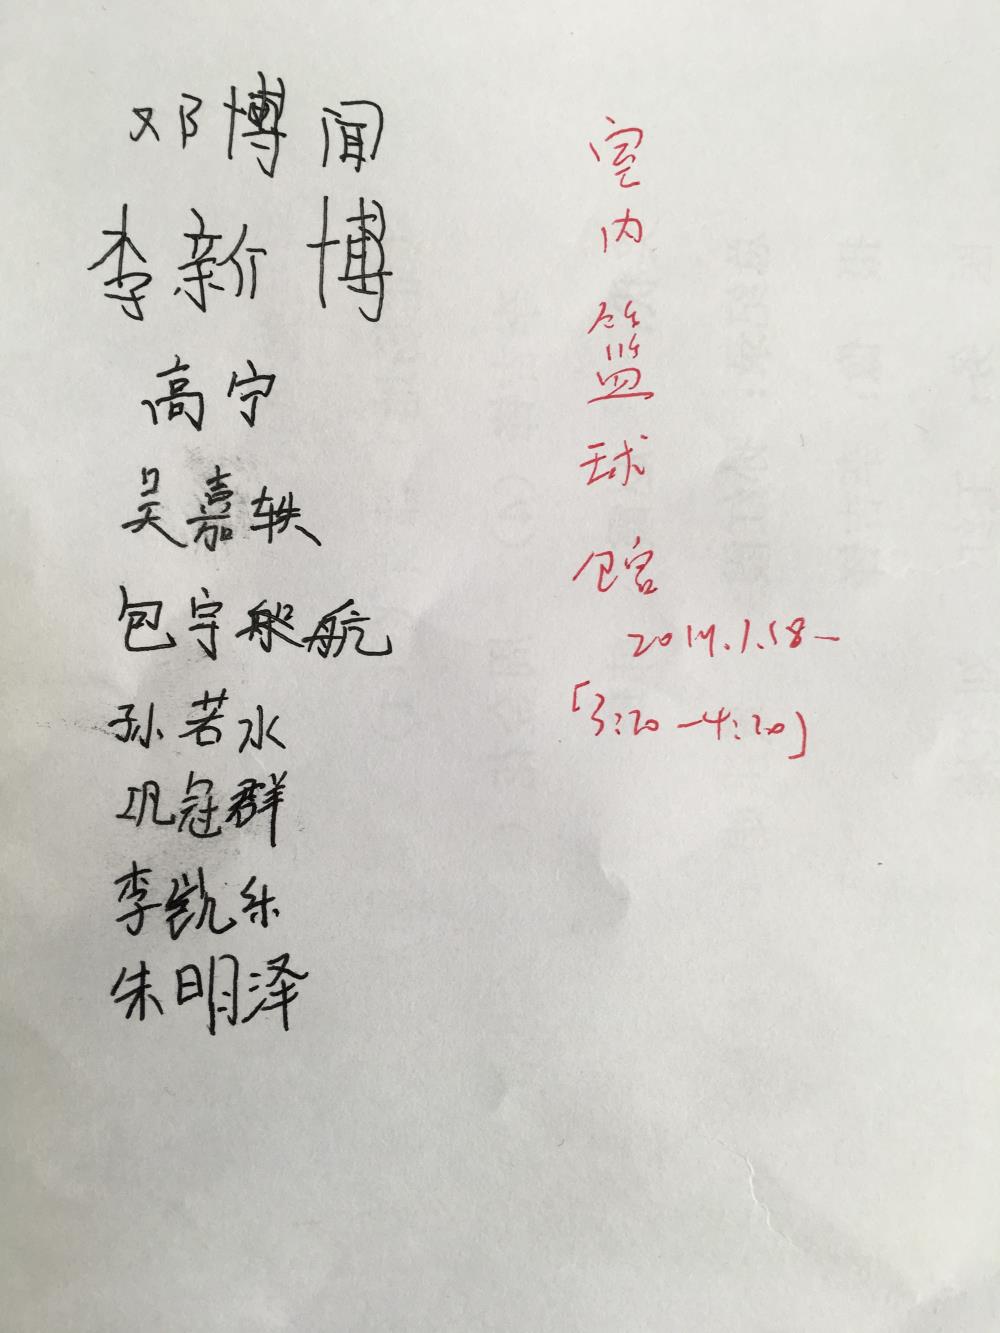 邓博闻
李新博
高宁
吴嘉轶
包宇船航
孙若水
巩冠群
李凯乐
朱明泽
室
内
篮
球
馆
[3:20-4:20]